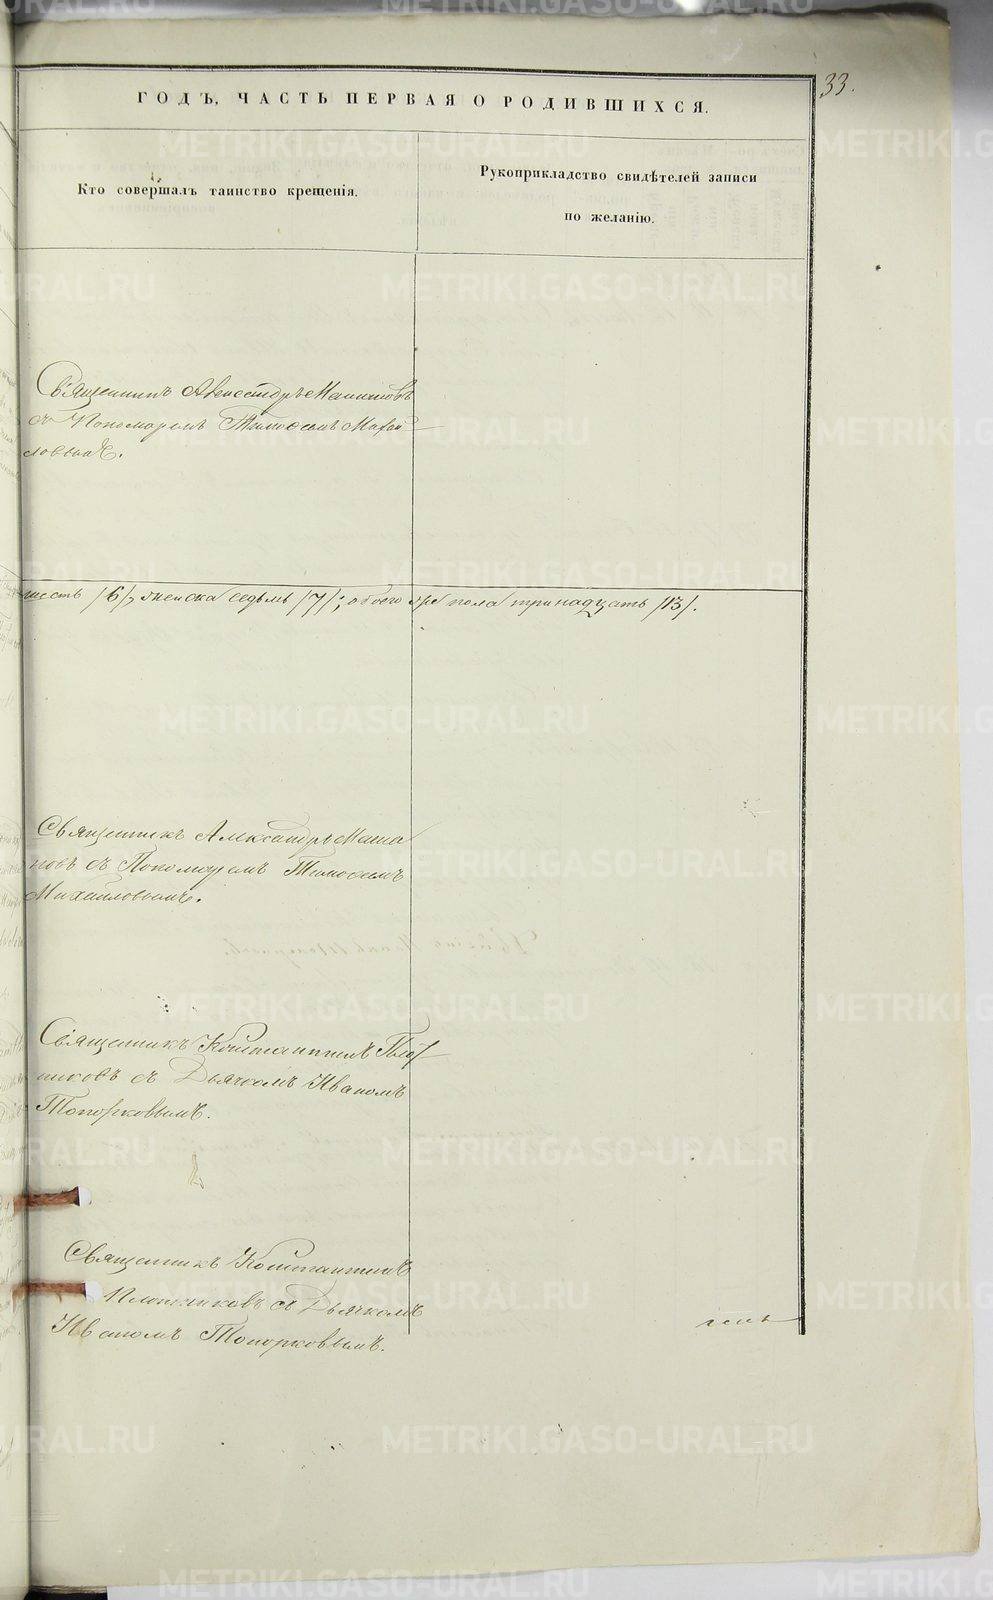 33.
ГОДЪ, ЧАСТЬ ПЕРВАЯ О РОДИВШИХСЯ.
Кто совершалъ таинство крещенія.
Рукоприкладство свидѣтелей записи
по желанію.
Священникъ Александръ
съ Пономаремъ Тимофеемъ Михай
ловымъ.
шесть /6/, женска седьмь /7/; обоего пола тринадцать /13/.
Священникъ Александръ Маша
новъ съ Пономаремъ Тимофеемъ
Михайловымъ.
Священникъ Константинъ Плот
никовъ съ Дьячкомъ Иваномъ
Топорковымъ.
Священникъ Константинъ
Плотниковъ съ Дьячкомъ
Иваномъ Топорковымъ.
METRIKI.GASO-URAL.RU